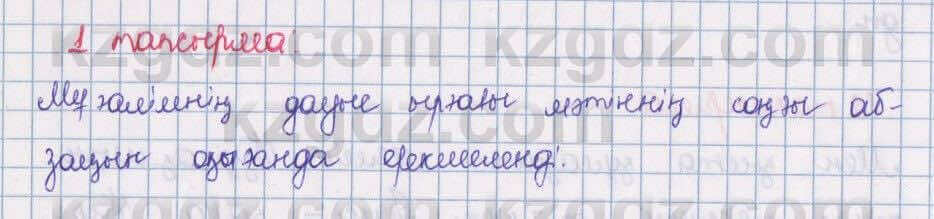 1 тапсырма:
Мұғалімнің дауыс ырғағы мәтіннің соңғы аб-
зацын оқығанда ерекшеленді.
kzgdz.com